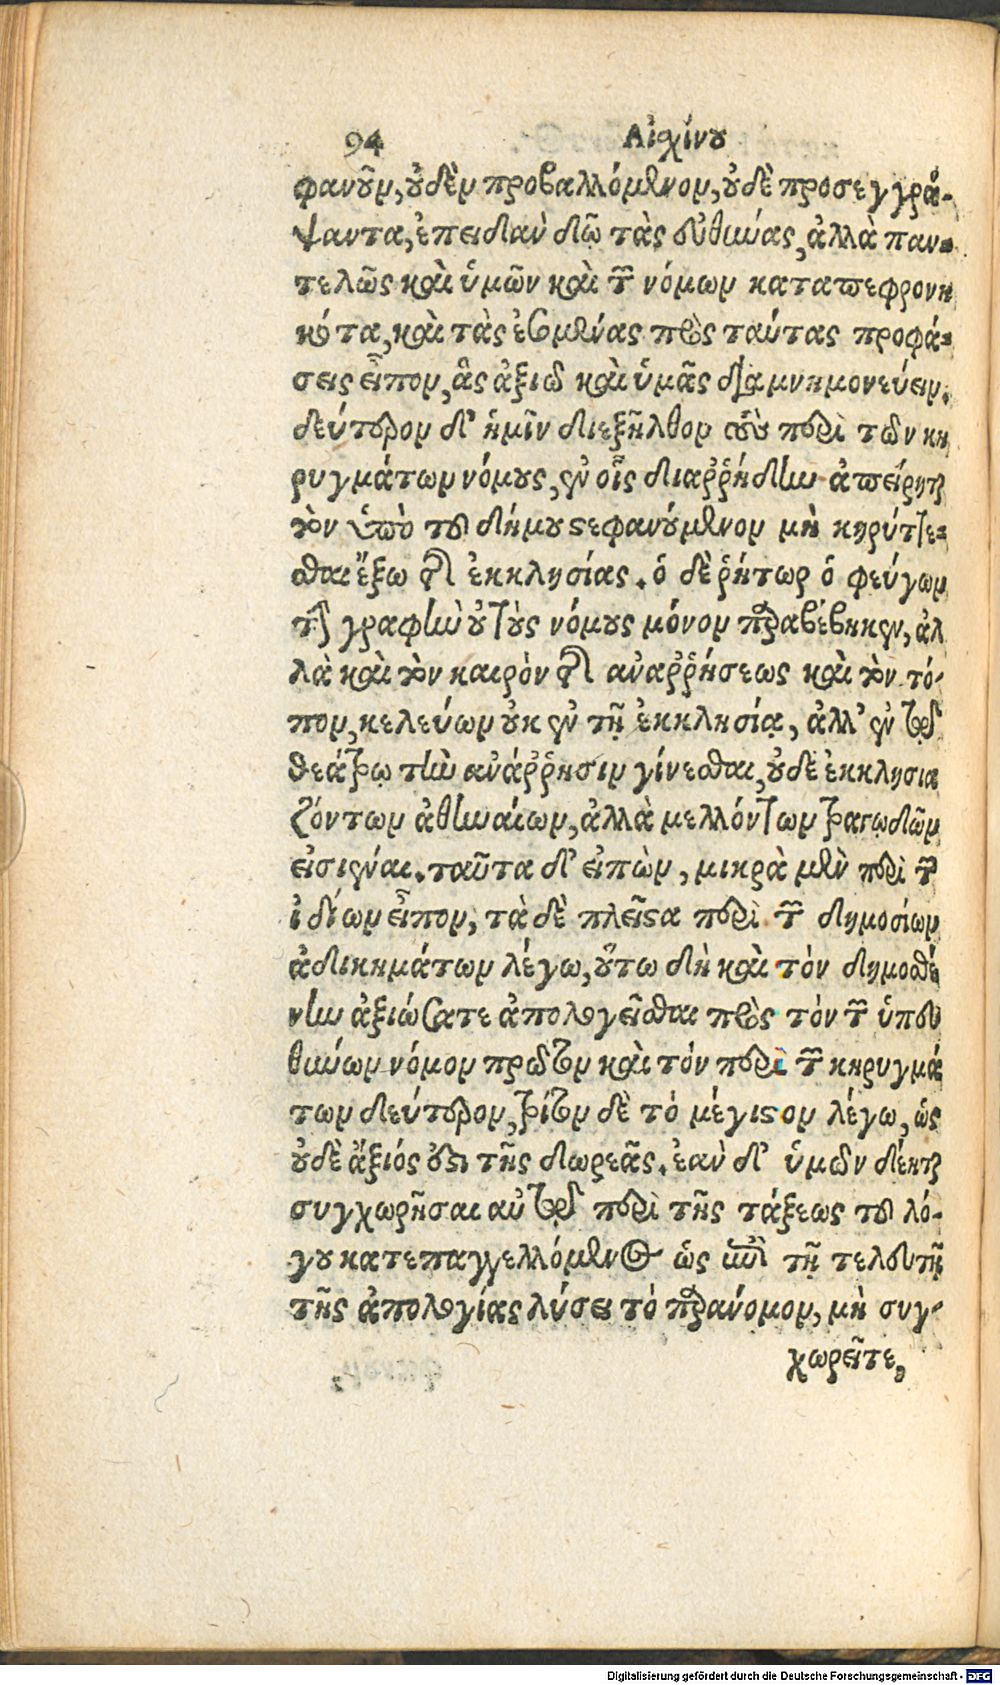 94 Αἰσχίνου
φανοῦν, οὐδὲν προβαλλόμενον, οὐδὲ προσεγγρά-
ψαντα, ἐπειδὰν δῶ τὰς εὐθύνας, ἀλλὰ παν-
τελῶς καὶ ὑμῶν καὶ τῶν νόμων καταπεφρονη
κότα, καὶ τὰς ἐσομένας πρὸς ταύτας προφά-
σεις εἶπον, ἃς ἀξιῶ καὶ ὑμᾶς διαμνημονεύειν.
δεύτερον δ' ἡμῖν διεξῆλθον τοὺς περὶ τῶν κη
ρυγμάτων νόμους, ἐν οἷς διαῤῥήδην ἀπείρηται
τὸν ὑπὸ τοῦ δήμου στεφανούμενον μὴ κηρύττε-
σθαι ἔξω τῆς ἐκκλησίας. ὁ δὲ ῥήτωρ ὁ φεύγων
τὴν γραφὴν οὐ τοὺς νόμους μόνον παραβέβηκεν, ἀλ
λὰ καὶ τὸν καιρὸν τῆς ἀναῤῥήσεως καὶ τὸν τό-
πον, κελεύων οὐκ ἐν τῇ ἐκκλησίᾳ, ἀλλ' ἐν τῷ
θεάτρῳ τὴν ἀνάῤῥησιν γίνεσθαι, οὐδὲ ἐκκλησια
ζόντων ἀθηναίων, ἀλλὰ μελλόντων τραγῳδῶν
εἰσιέναι. ταῦτα δ' εἰπὼν, μικρὰ μὲν περὶ τῶν
ἰδίων εἶπον, τὰ δὲ πλεῖστα περὶ τῶν δημοσίων
ἀδικημάτων λέγω, οὕτω δὴ καὶ τὸν δημοσθέ
νην ἀξιώσατε ἀπολογεῖσθαι πρὸς τὸν τῶν ὑπευ
θύνων νόμον πρῶτον καὶ τὸν περὶ τῶν κηρυγμά
των δεύτερον, τρίτον δὲ τὸ μέγιστον λέγω, ὡς
οὐδὲ ἄξιός ἐστι τῆς δωρεᾶς. ἐὰν δ' ὑμῶν δέηται
συγχωρῆσαι αὐτῷ περὶ τῆς τάξεως τοῦ λό-
γου κατεπαγγελλόμενος ὡς ἐπὶ τῇ τελευτῇ
τῆς ἀπολογίας λύσει τὸ παράνομον, μὴ συγ-
χωρεῖτε,
Digitalisierung gefördert durch die Deutsche Forschungsgemeinschaft - DFG